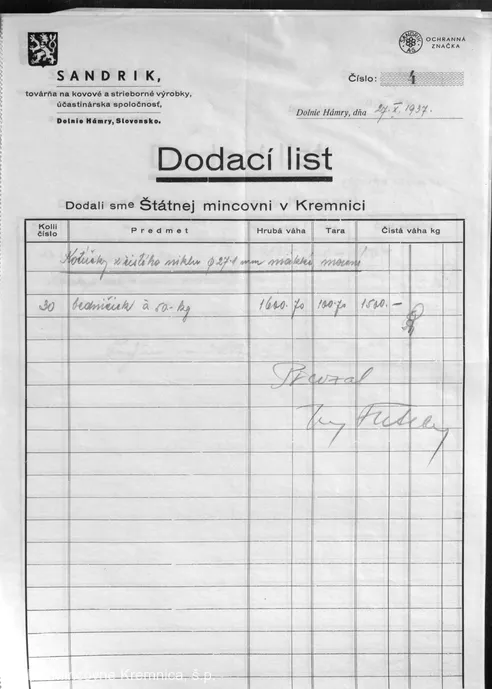 SANDRIK,
továrňa na kovové a strieborné výrobky,
účastinárska spoločnosť,
Dolnie Hámry, Slovensko.
SANDRIK
AS
OCHRANNÁ
ZNAČKA
Číslo: 4
Dolnie Hámry, dňa 27. X. 1937.
Dodací list
Dodali sme Štátnej mincovni v Kremnici
Kolli číslo Predmet Hrubá váha Tara Čistá váha kg
Kotúčky z čistého niklu φ 27·1 mm mäkké morené
30 bedničiek à 50.- kg 1600. 70 100. 70 1500.—
Prevzal
Kremnica š.p.